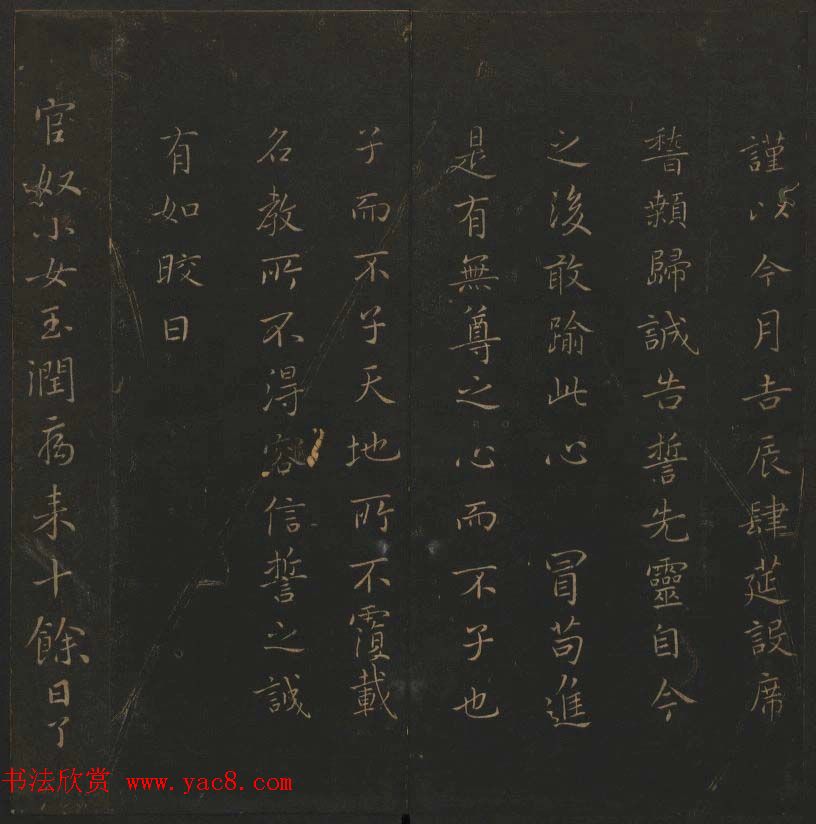 謹以今月吉辰肆莚設席
稽顙歸誠告誓先靈自今
之後敢踰此心 冒苟進
是有無尊之心而不子也
子而不子天地所不覆載
名教所不得容信誓之誠
有如晈日
官奴小女玉潤病来十餘日了
书法欣赏 www.yac8.com